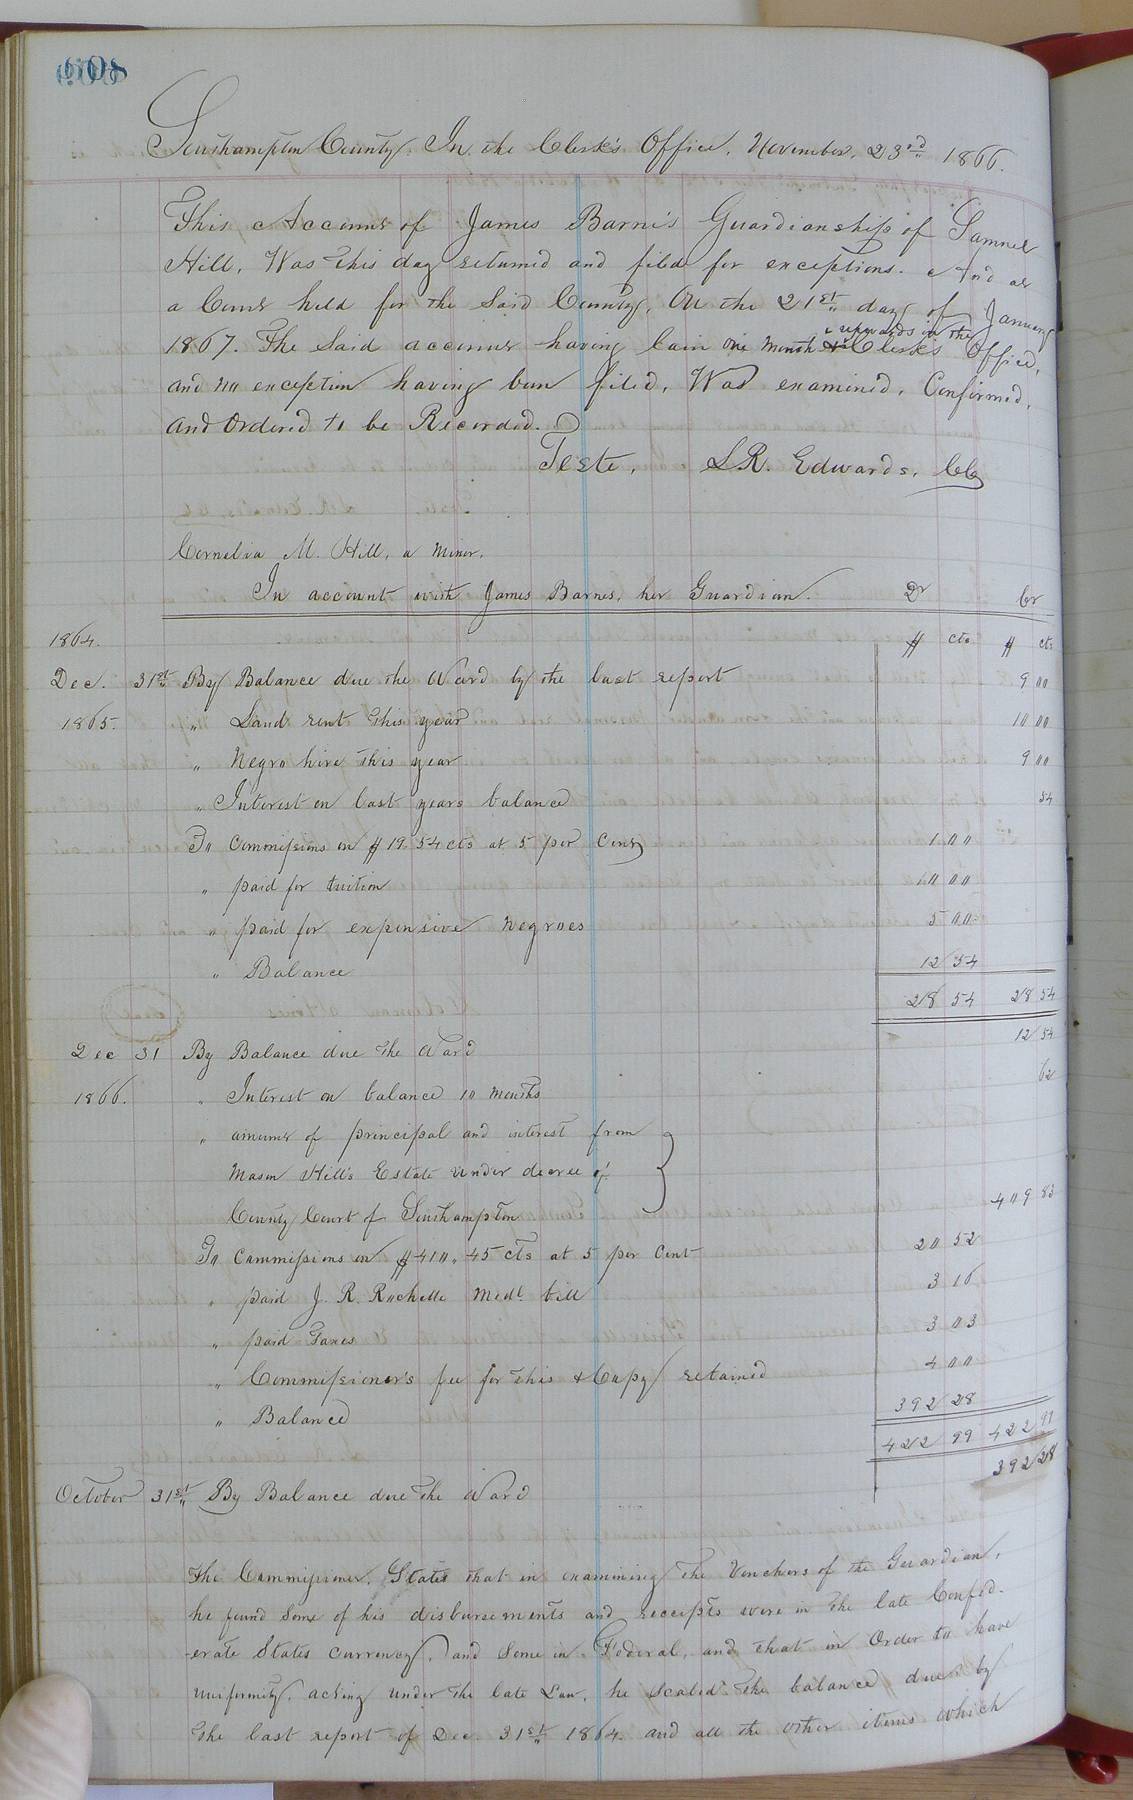 Southampton County. In the Clerk's Office. November. 23rd 1866.
This Account of James Barnes Guardianship of Samuel
Hill, Was this day returned and filed for exceptions. And at
a Court held for the Said County, On the 21st day of January
1867. The Said account having lain one month & upwards in the Clerk's Office,
and no exception having been filed, Was examined, Confirmed,
and Ordered to be Recorded.
Teste, L.R. Edwards, CC
Cornelia M. Hill, a minor.
In account with James Barnes, her Guardian. Dr Cr
1864. $ cts $ cts
Dec. 31st By Balance due the Ward by the last report 9 00
1865. " Land rent this year 10 00
" Negro hire this year 9 00
" Interest on last years balance 54
To Commissions on $19.54 cts at 5 per Cent 1 00
" paid for tuition 10 00
" paid for expensive negroes 5 00
" Balance 12 54
28 54 28 54
Dec 31 By Balance due the Ward 12 54
1866. " Interest on balance 10 months 62
" amount of principal and interest from
Mason Hill's Estate under decree of
County Court of Southampton 409 83
To Commissions on $410.45 cts at 5 per Cent 20 52
" paid J. R. Rochelle Medl. bill 3 16
" paid Taxes 3 03
" Commissioner's fee for this & Copy retained 4 00
" Balance 392 28
422 99 422 99
October 31st By Balance due the Ward 392 28
The Commissioner. States that in examining the Vouchers of the Guardian,
he found some of his disbursements and receipts were in the late Confed-
-erate States currency, and some in Federal, and that in Order to have
uniformity, acting under the late Law, he Scaled the balance due by
the last report of Dec. 31st 1864. and all the other items which